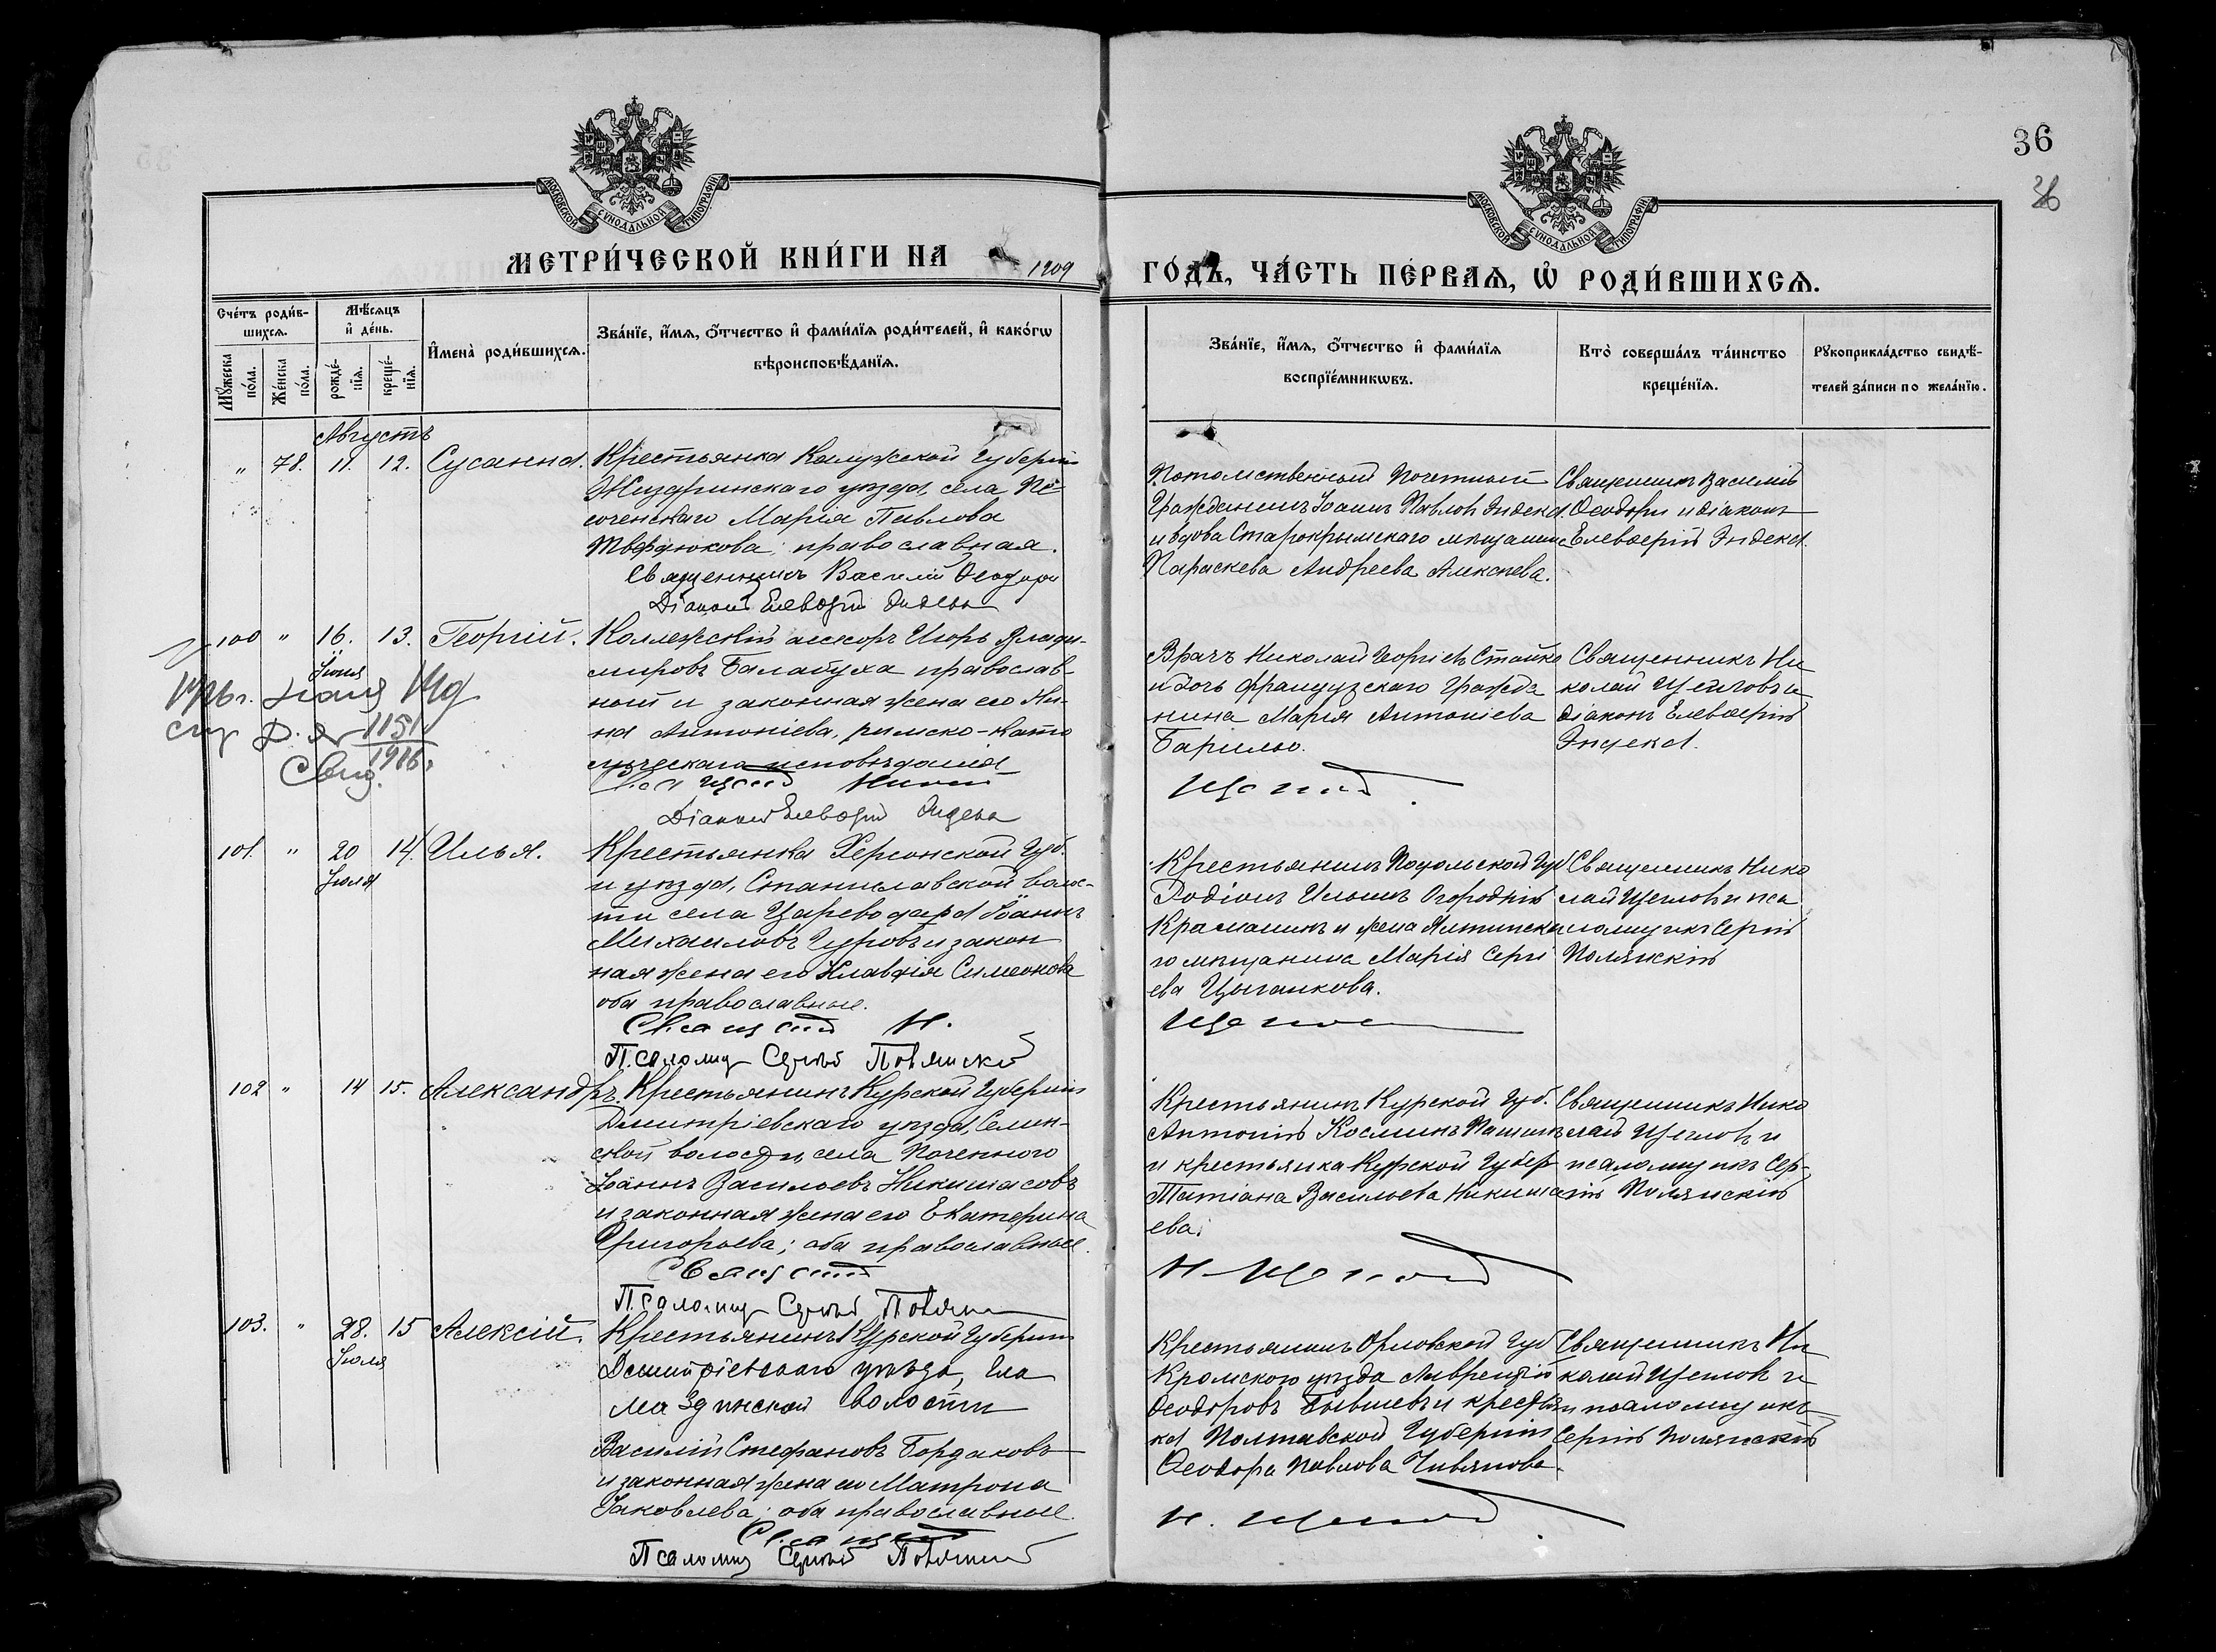 36
36
МОСКОВСКОЙ СѴНОДАЛЬНОЙ ТИПОГРАФІИ
МОСКОВСКОЙ СѴНОДАЛЬНОЙ ТИПОГРАФІИ
МЕТРИ́ЧЕСКОЙ КНИ́ГИ НА 1909
ГО́ДЪ, ЧА́СТЬ ПЕ́РВАѦ, Ѡ҆ РОДИ́ВШИХСѦ.
Сче́тъ роди́в-
шихсѧ.
Мꙋ́жеска по́ла.
Же́нска по́ла.
Мѣ́сѧцъ
и҆ де́нь.
рожде́-
нїѧ.
креще́-
нїѧ.
И҆мена̀ роди́вшихсѧ.
Зва́нїе, и҆́мѧ, ѻ҆́тчество и҆ фами́лїѧ роди́телей, и҆ како́гѡ
вѣроисповѣ́данїѧ.
Зва́нїе, и҆́мѧ, ѻ҆́тчество и҆ фами́лїѧ
воспрїе́мникѡвъ.
Кто̀ соверша́лъ та́инство
креще́нїѧ.
Рꙋкоприкла́дство свидѣ́-
телей за́писи по жела́нїю.
Августъ
" 78. 11. 12. Сусанна.
Крестьянка Калужской Губерніи
Жиздринскаго уѣзда, села Пѣ-
соченскаго Марія Павлова
Твердюкова; православная.
Священникъ Василій Ѳеодори
Діаконъ Елевѳерій Эндека
Потомственный Почетный
Гражданинъ Іоаннъ Павловъ Эндека
и вдова Старокрымскаго мѣщанина
Параскева Андреева Алексѣева.
Священникъ Василій
Ѳеодори и діаконъ
Елевѳерій Эндека.
100 " 16. 13. Георгій.
Іюня
Коллежскій ассесоръ Игорь Влади-
міровъ Балабуха православ-
ный и законная жена его Ни-
на Антоніева, римско-като
лическаго исповѣданія
Діаконъ Елевѳерій Эндека
Врачъ Николай Георгіевъ Стойко
и дочь французскаго гражда
нина Марія Антоніева
Барильо.
Священникъ Ни
колай Щегловъ и
діаконъ Елевѳерій
Эндека.
1151
1916
101. " 20 14. Илья.
Іюля
Крестьянка Херсонской Губ.
и уѣзда, Станиславской волос-
ти села Цареводара Іоаннъ
Михаиловъ Гуровъ и закон
ная жена его Клавдія Симеонова
оба православные.
Псаломщ Сергій Полянскій
Крестьянинъ Подольской Губ
Родіонъ Ильинъ Огородній
Крамаринъ и жена Ялтинска
го мѣщанина Марія Серги
ева Цыганкова.
Священникъ Нико
лай Щегловъ и пса
ломщикъ Сергій
Полянскій
102 " 14 15. Александръ.
Крестьянинъ Курской Губерніи
Дмитріевскаго уѣзда, Селин-
ской волости, села Поченного
Іоаннъ Васильевъ Никишасовъ
и законная жена его Екатерина
Григорьева; оба православные.
Псаломщ Сергій
Крестьянинъ Курской Губ.
Антоній Косминъ Пашинъ
и крестьянка Курской Губер
Татіана Васильева Никиша
ева.
Священникъ Нико
лай Щегловъ и
псаломщикъ Сер-
гій Полянскій
103. " 28. 15 Алексій.
Іюля
Крестьянинъ Курской Губерніи
Дмитріевскаго уѣзда,
волости
Василій Стефановъ Бордаковъ
и законная жена его Матрона
Іаковлева; оба православные.
Псаломщ Сергій Полянскій
Крестьянинъ Орловской Губ
Кромского уѣзда Лаврентій
Ѳеодоровъ Бывшевъ и крестьян
ка Полтавской Губерніи
Ѳеодора Павлова
Священникъ Ни
колай Щегловъ и
псаломщикъ
Сергій Полянскій